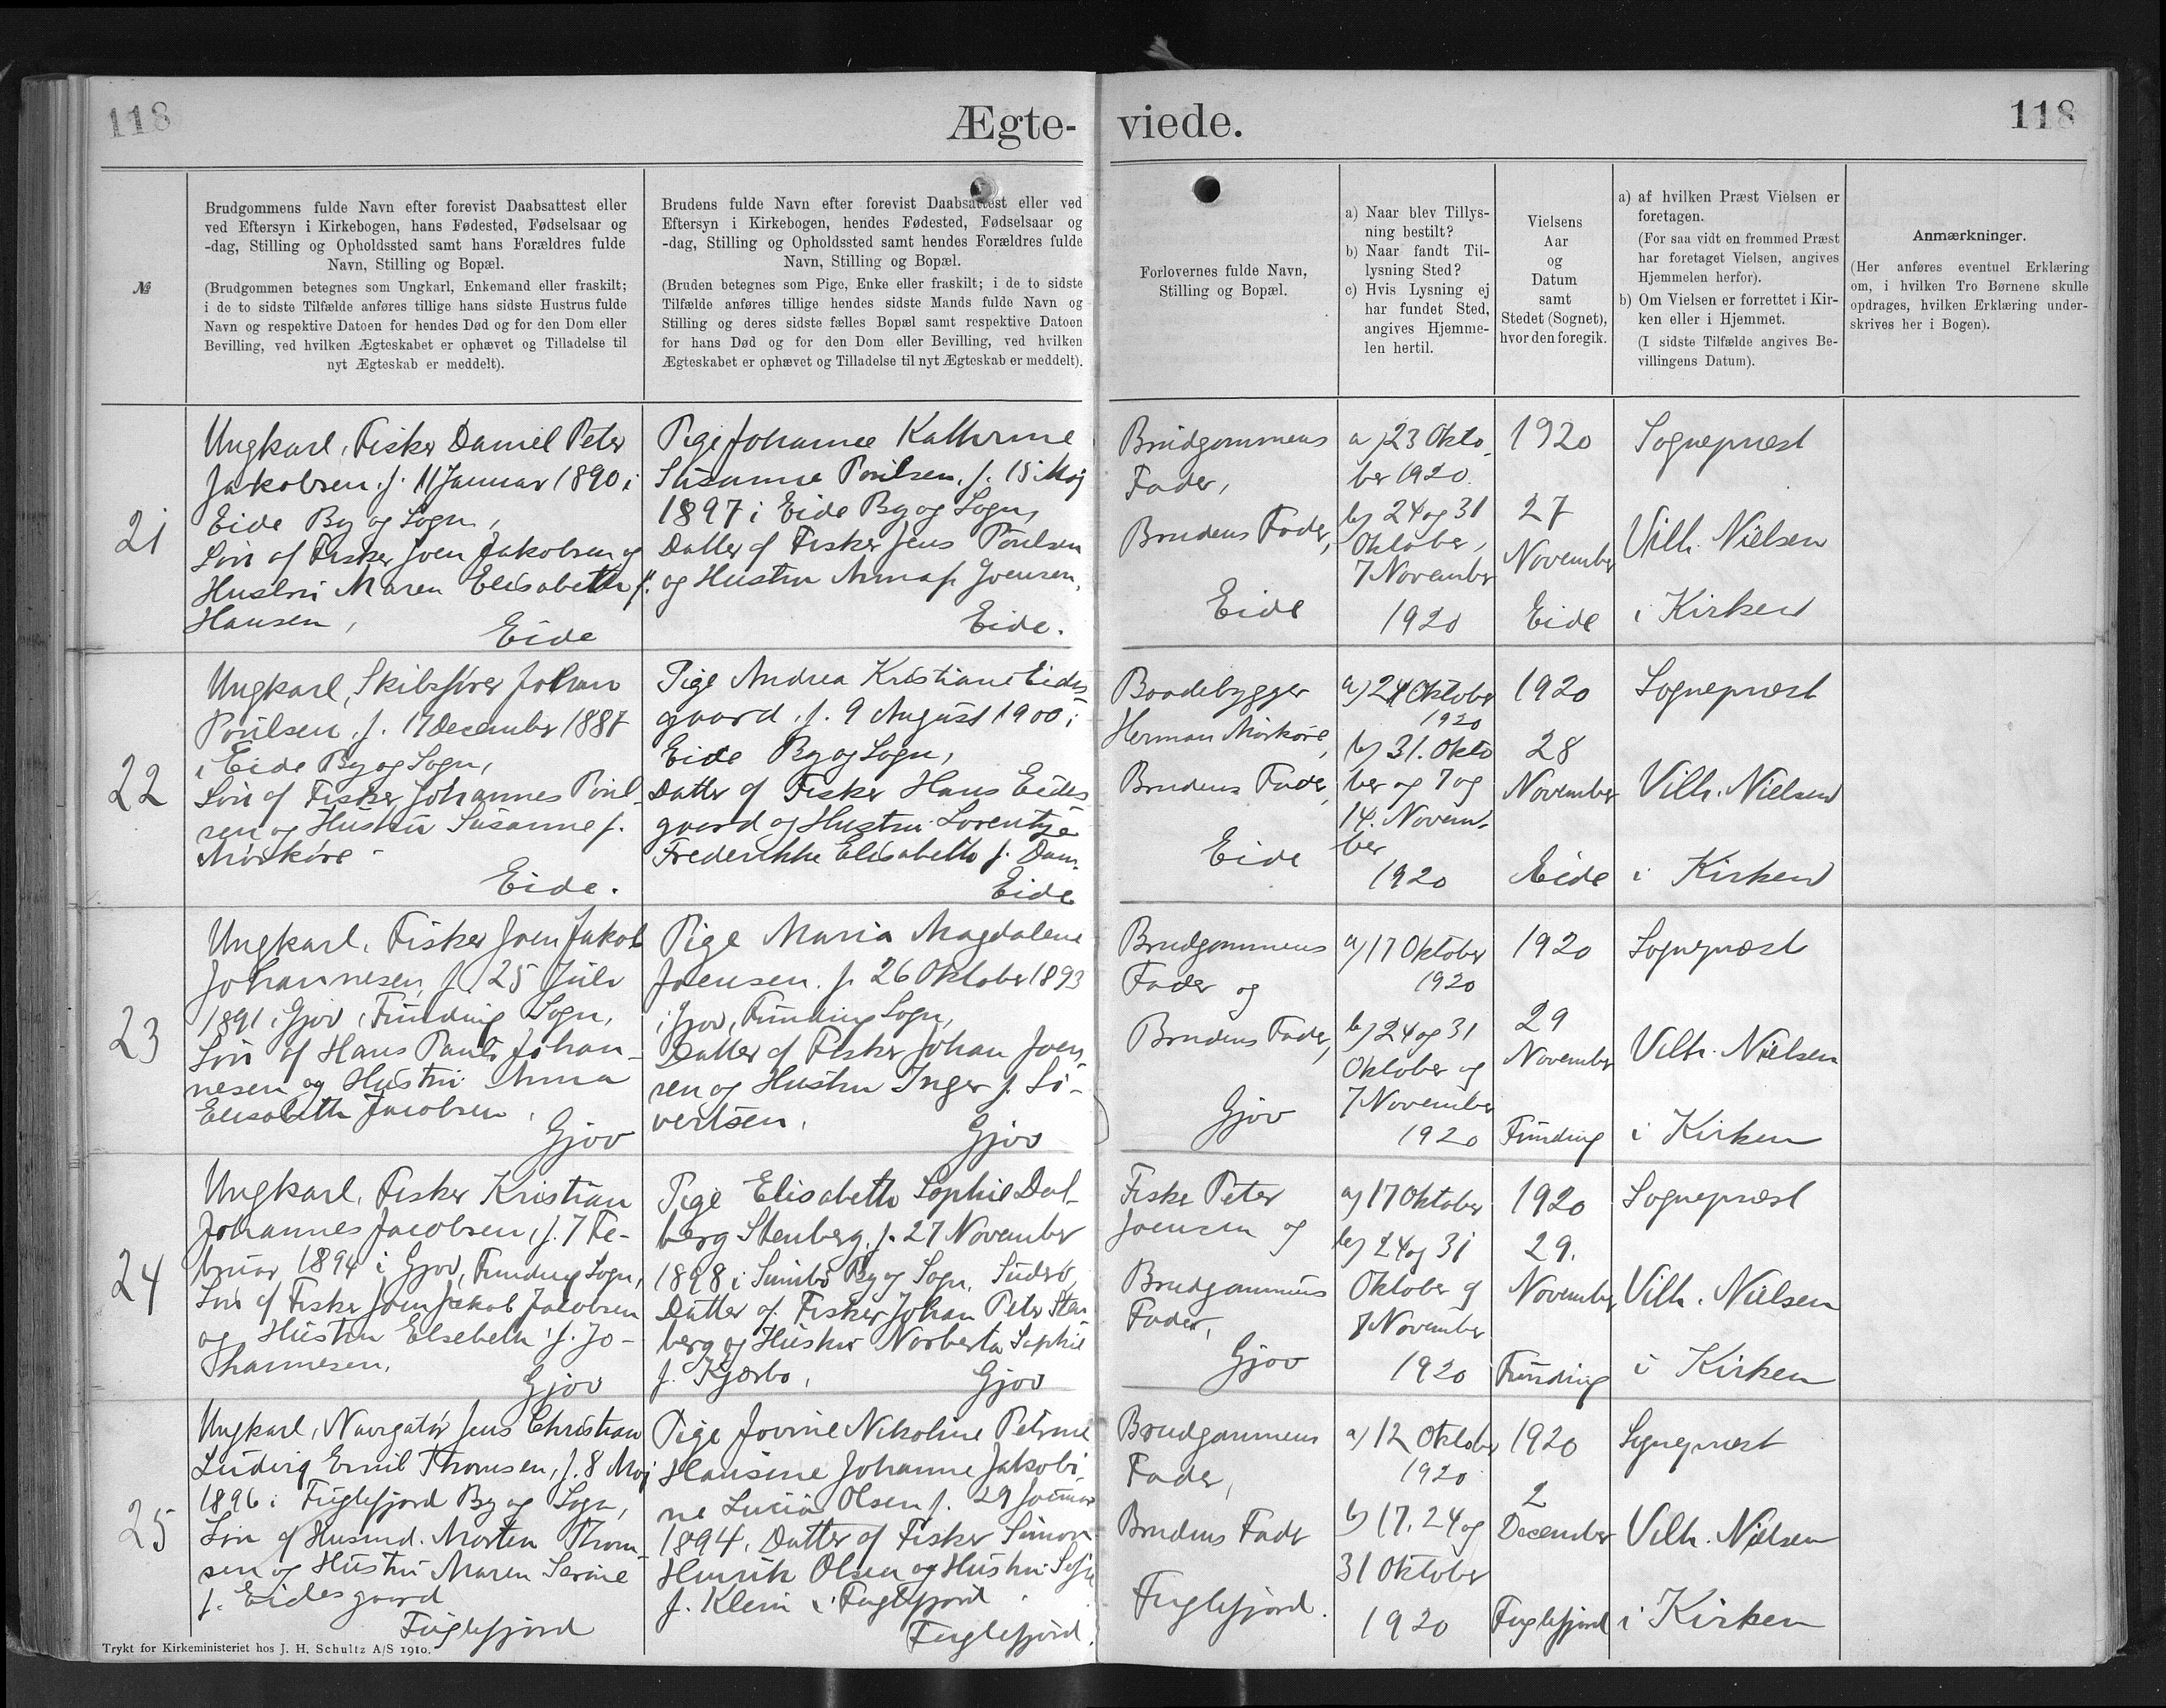 118
Ægte-
viede.
118
№
Brudgommens fulde Navn efter forevist Daabsattest eller
ved Eftersyn i Kirkebogen, hans Fødested, Fødselsaar og
-dag, Stilling og Opholdssted samt hans Forældres fulde
Navn, Stilling og Bopæl.
(Brudgommen betegnes som Ungkarl, Enkemand eller fraskilt;
i de to sidste Tilfælde anføres tillige hans sidste Hustrus fulde
Navn og respektive Datoen for hendes Død og for den Dom eller
Bevilling, ved hvilken Ægteskabet er ophævet og Tilladelse til
nyt Ægteskab er meddelt).
Brudens fulde Navn efter forevist Daabsattest eller ved
Eftersyn i Kirkebogen, hendes Fødested, Fødselsaar og
-dag, Stilling og Opholdssted samt hendes Forældres fulde
Navn, Stilling og Bopæl.
(Bruden betegnes som Pige, Enke eller fraskilt; i de to sidste
Tilfælde anføres tillige hendes sidste Mands fulde Navn og
Stilling og deres sidste fælles Bopæl samt respektive Datoen
for hans Død og for den Dom eller Bevilling, ved hvilken
Ægteskabet er ophævet og Tilladelse til nyt Ægteskab er meddelt).
Forlovernes fulde Navn,
Stilling og Bopæl.
a) Naar blev Tillys-
ning bestilt?
b) Naar fandt Til-
lysning Sted?
c) Hvis Lysning ej
har fundet Sted,
angives Hjemme-
len hertil.
Vielsens
Aar
og
Datum
samt
Stedet (Sognet),
hvor den foregik.
a) af hvilken Præst Vielsen er
foretagen.
(For saa vidt en fremmed Præst
har foretaget Vielsen, angives
Hjemmelen herfor).
b) Om Vielsen er forrettet i Kir-
ken eller i Hjemmet.
(I sidste Tilfælde angives Be-
villingens Datum).
Anmærkninger.
(Her anføres eventuel Erklæring
om, i hvilken Tro Børnene skulle
opdrages, hvilken Erklæring under-
skrives her i Bogen).
21
Ungkarl, Fisker Daniel Peter
Jakobsen, f. 11 Januar 1890 i
Eide By og Sogn,
Søn af Fisker Joen Jakobsen og
Hustru Maren Elisabeth f.
Hansen,
Eide
Pige Johanne Kathrine
Susanne Poulsen, f. 15 Maj
1897 i Eide By og Sogn,
Datter af Fisker Jens Poulsen
og Hustru Anna f. Joensen,
Eide.
Brudgommens
Fader,
Brudens Fader,
Eide
a) 23 Okto
ber 1920.
b) 24 og 31
Oktober,
7 November
1920
1920
27
November
Eide
Sognepræst
Vilh. Nielsen
i Kirken
22
Ungkarl, Skibsfører Johan
Poulsen, f. 17 December 1887
i Eide By og Sogn,
Søn af Fisker Johannes Poul-
sen og Hustru Susanne f.
Mörköre
Eide.
Pige Andrea Kristiane Eides
gaard, f. 9 August 1900 i
Eide By og Sogn,
Datter af Fisker Hans Eides
gaard og Hustru Lorentze
Frederikke Elisabeth f. Dam
Eide
Baadebygger
Herman Mörköre,
Brudens Fader,
Eide
a) 24 Oktober
1920
b) 31. Okto
ber og 7 og
14. Novem-
ber
1920
1920
28
November
Eide
Sognepræst
Vilh. Nielsen
i Kirken
23
Ungkarl, Fisker Joen Jakob
Johannesen, f. 25 Juli
1891 i Gjov, Funding Sogn,
Søn af Hans Pauli Johan-
nesen og Hustru Anna
Elisabeth Jacobsen,
Gjov
Pige Maria Magdalene
Joensen, f. 26 Oktober 1893
i Gjov, Funding Sogn,
Datter af Fisker Johan Joen
sen og Hustru Inger f. Si-
vertsen,
Gjov
Brudgommens
Fader og
Brudens Fader,
Gjov
a) 17 Oktober
1920
b) 24 og 31
Oktober og
7 November
1920
1920
29
November
Funding
Sognepræst
Vilh. Nielsen
i Kirken
24
Ungkarl, Fisker Kristian
Johannes Jacobsen, f. 7 Fe-
bruar 1894 i Gjov, Funding Sogn,
Søn af Fisker Joen Jakob Jacobsen
og Hustru Elsebeth f. Jo-
hannesen,
Gjov
Pige Elisabeth Sophie Dal-
berg Stenberg, f. 27 November
1898 i Sumbö By og Sogn, Suderö,
Datter af Fisker Johan Peter Sten
berg og Hustru Norberta Sophie
f. Kjærbo,
Gjov
Fisker Peter
Joensen og
Brudgommens
Fader,
Gjov
a) 17 Oktober
b) 24 og 31
Oktober og
8 November
1920
1920
29.
November
Funding
Sognepræst
Vilh. Nielsen
i Kirken
25
Ungkarl, Navigatör Jens Christian
Ludvig Emil Thomsen, f. 8 Maj
1896 i Fuglefjord By og Sogn,
Søn af Husmd. Morten Thom-
sen og Hustru Maren Serine
f. Eidesgaard
Fuglefjord
Pige Jovine Nikoline Petrine
Hansine Johanne Jakobi-
ne Lucia Olsen f. 29 Januar
1894, Datter af Fisker Simon
Henrik Olsen og Hustru Sofie
f. Klein i Fuglefjord
Fuglefjord.
Brudgommens
Fader,
Brudens Fader
Fuglefjord.
a) 12 Oktober
1920
b) 17, 24 og
31 Oktober
1920
1920
2
December
Fuglefjord
Sognepræst
Vilh. Nielsen
i Kirken
Trykt for Kirkeministeriet hos J. H. Schultz A/S 1910.